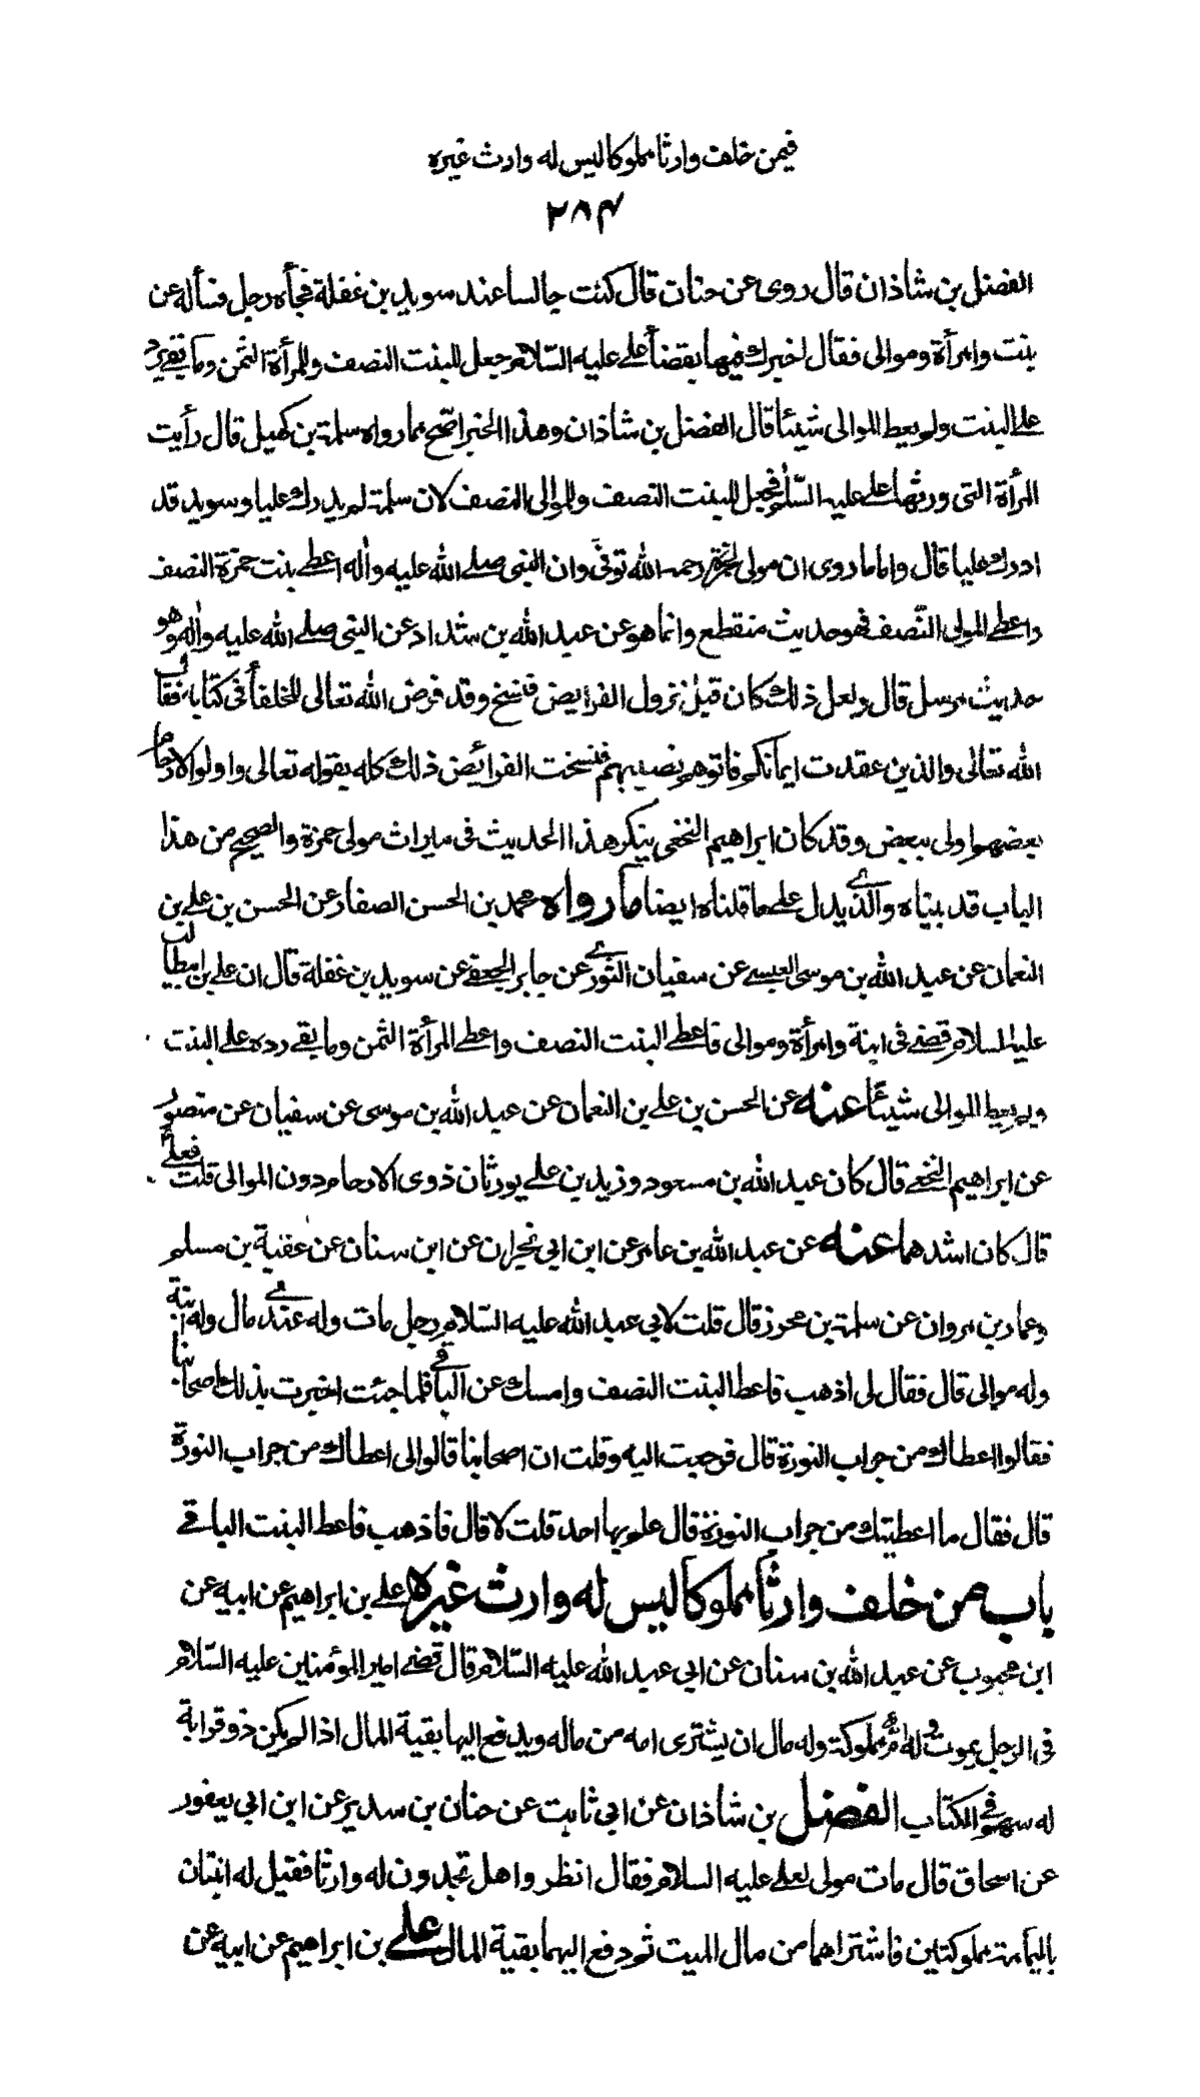 فيمن خلف وارثا مملوكا ليس له وارث غيره
٢٨۴
الفضل بن شاذان قال روى عن حنان قال كنت جالسا عند سويد بن غفلة فجأه رجل فسأله عن
بنت وامرأة وموالى فقال اخبرك فيها بقضأ على عليه السّلام جعل للبنت النصف وللمرأة الثمن وما بقى يرد
على البنت ولم يعط الموالى شيئا قال الفضل بن شاذان وهذا الخبر اصّح مما رواه سلمة بن كهيل قال رأيت
المرأة التى ورثها على عليه السّلم فجعل للبنت النصف وللموالى النصف لان سلمة لم يدرك عليا وسويد قد
ادرك عليا قال واما ما روى ان مولى لحمزة رحمه الله توفى وان النبى صلى الله عليه واله اعطى بنت حمزة النصف
واعطى المولى النّصف فهو حديث منقطع وانما هو عن عبد الله بن شداد عن النبى صلى الله عليه واله وهو
حديث مرسل قال ولعل ذلك كان قبل نزول الفرايض فنسخ وقد فرض الله تعالى للحلفأ فى كتابه فقال
الله تعالى والذين عقدت ايمانكم فاتوهم نصيبهم فنسخت الفرائض ذلك كله بقوله تعالى واولوا الارحام
بعضهم اولى ببعض وقد كان ابراهيم النخعى ينكر هذا الحديث فى ميراث مولى حمزة والصحيح من هذا
الباب قد بيناه والذى يدل على ما قلناه ايضا ما رواه محمد بن الحسن الصفار عن الحسن بن على بن
النعمان عن عبيد الله بن موسى العبسى عن سفيان الثورى عن جابر الجعفى عن سويد بن غفلة قال ان على بن ابيطالب
عليه السلام قضى فى ابنة وامرأة وموالى فاعطى البنت النصف واعطى المرأة الثمن وما بقى رده على البنت
ولم يعط الموالى شيئا عنه عن الحسن بن على بن النعمان عن عبيد الله بن موسى عن سفيان عن منصور
عن ابراهيم النخعى قال كان عبد الله بن مسعود وزيد بن على يورثان ذوى الارحام دون الموالى قلت فعلى
قال كان اشدهما عنه عن عبد الله بن عامر عن ابن ابى نجران عن ابن سنان عن عقبة بن مسلم
وعمار بن مروان عن سلمة بن محرز قال قلت لابى عبد الله عليه السّلام رجل مات وله عندى مال وله ابنة
وله موالى قال فقال لى اذهب فاعط البنت النصف وامسك عن الباقى فلما جئت اخبرت بذلك اصحابنا
فقالوا اعطاك من جراب النورة قال فرجعت اليه وقلت ان اصحابنا قالوا لى اعطاك من جراب النورة
قال فقال ما اعطيتك من جراب النورة قال علم بها احد قلت لا قال فاذهب فاعط البنت الباقى
باب من خلف وارثا مملوكا ليس له وارث غيره على بن ابراهيم عن ابيه عن
ابن محبوب عن عبد الله بن سنان عن ابى عبد الله عليه السّلام قال قضى امير المؤمنين عليه السّلام
فى الرجل يموت وله ام مملوكة وله مال ان يشترى امه من ماله ويدفع اليها بقية المال اذا لم يكن ذو قرابة
له سهم فى الكتاب الفضل بن شاذان عن ابى ثابت عن حنان بن سدير عن ابن ابى يعفور
عن اسحاق قال مات مولى لعلى عليه السلام فقال انظروا هل تجدون له وارثا فقيل له ابنتان
باليمامة مملوكتين فاشتراهما من مال الميت ثم دفع اليهما بقية المال على بن ابراهيم عن ابيه عن